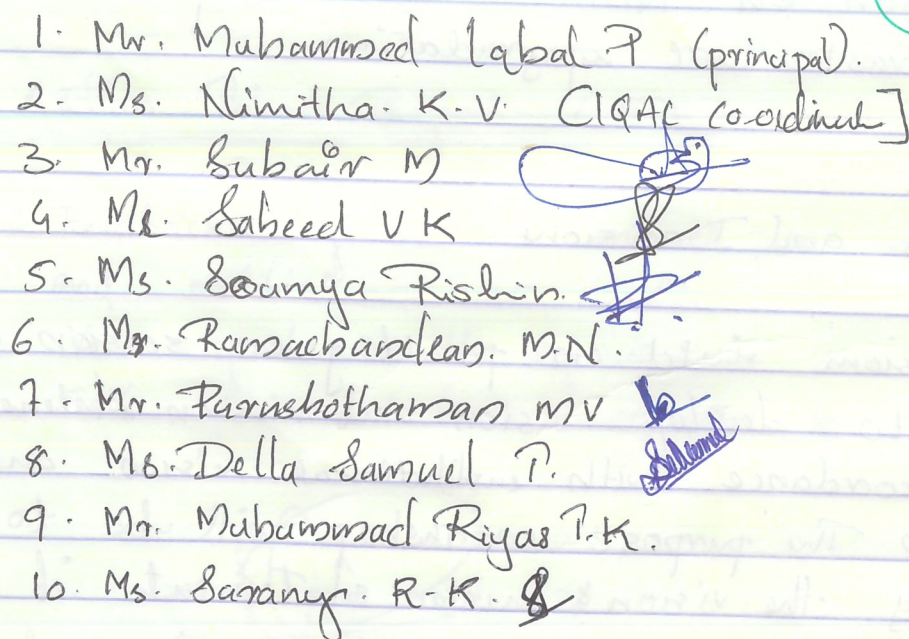 1. Mr. Muhammed Iqbal P (principal).
2. Ms. Nimitha. K.V. CIQAC Co-ordinat]
3. Mr. Subair M
4. Mr. Sabeed V K
5. Ms. Soumya Rishin.
6. Mr. Ramachandran. M.N.
7. Mr. Purushothaman MV
8. Ms. Della Samuel P.
9. Mr. Muhammad Riyas P.K.
10. Ms. Saranya. R-K.